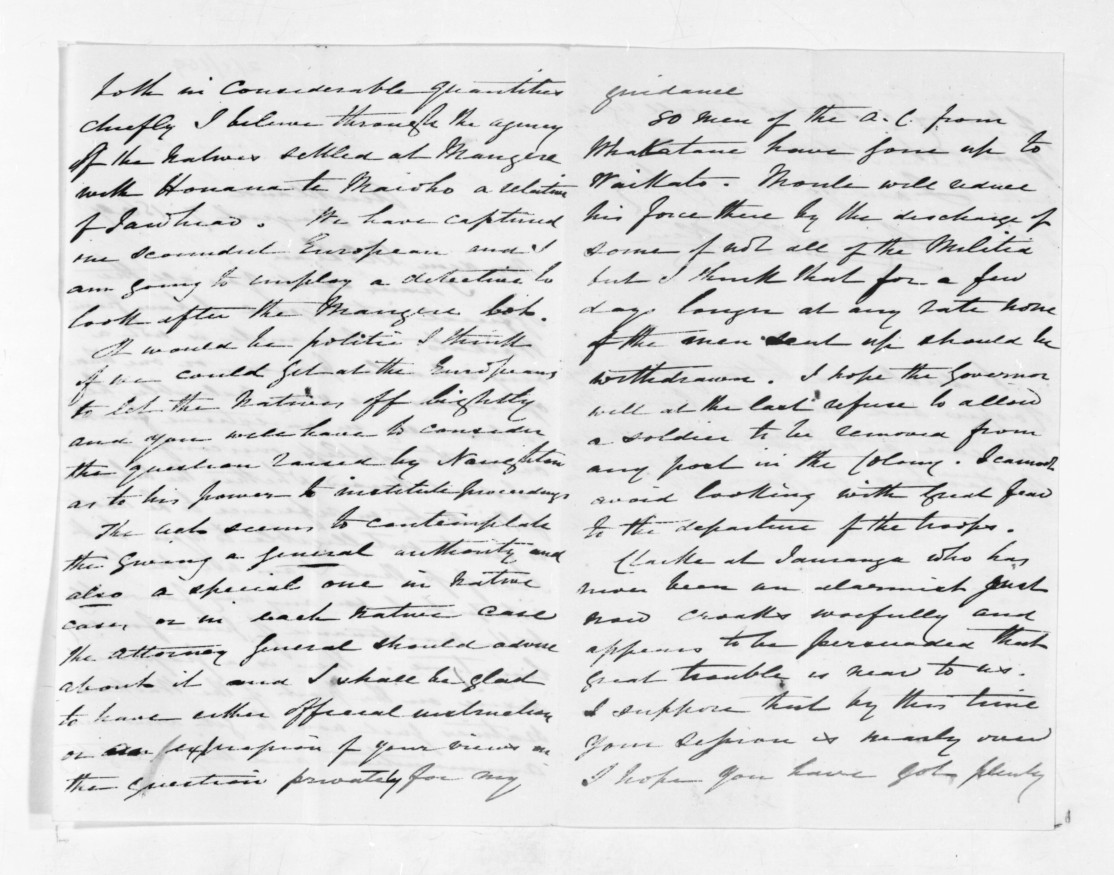 both in considerable quantities
chiefly I believe through the agency
of the Natives settled at Mangere
with Honana te Maioho a relative
of Tawhiao. We have captured
one scoundrel European and I
am going to employ a detective to
look after the Mangere lot.
It would be politic I think
if we could get at the Europeans
to let the Natives off lightly
and you will have to consider
the question raised by Naughton
as to his power to institute proceedings
The act seems to contemplate
the giving a general authority and
also a special one in native
case, or in each native case
the Attorney General should advise
about it and I shall be glad
to have either official instruction
or expression of your views on
the question privately for my
guidance
80 men of the A.C. from
Whakatane have gone up to
Waikato. Moule will reduce
his force there by the discharge of
some if not all of the Militia
but I think that for a few
days longer at any rate none
of the men sent up should be
withdrawn. I hope the Governor
will at the last refuse to allow
a soldier to be removed from
any post in the Colony. I cannot
avoid looking with great fear
to the departure of the troops.
Clarke at Tauranga who has
never been an alarmist just
now croaks woefully and
appears to be persuaded that
great trouble is near to us.
I suppose that by this time
your session is nearly over
I hope you have got plenty